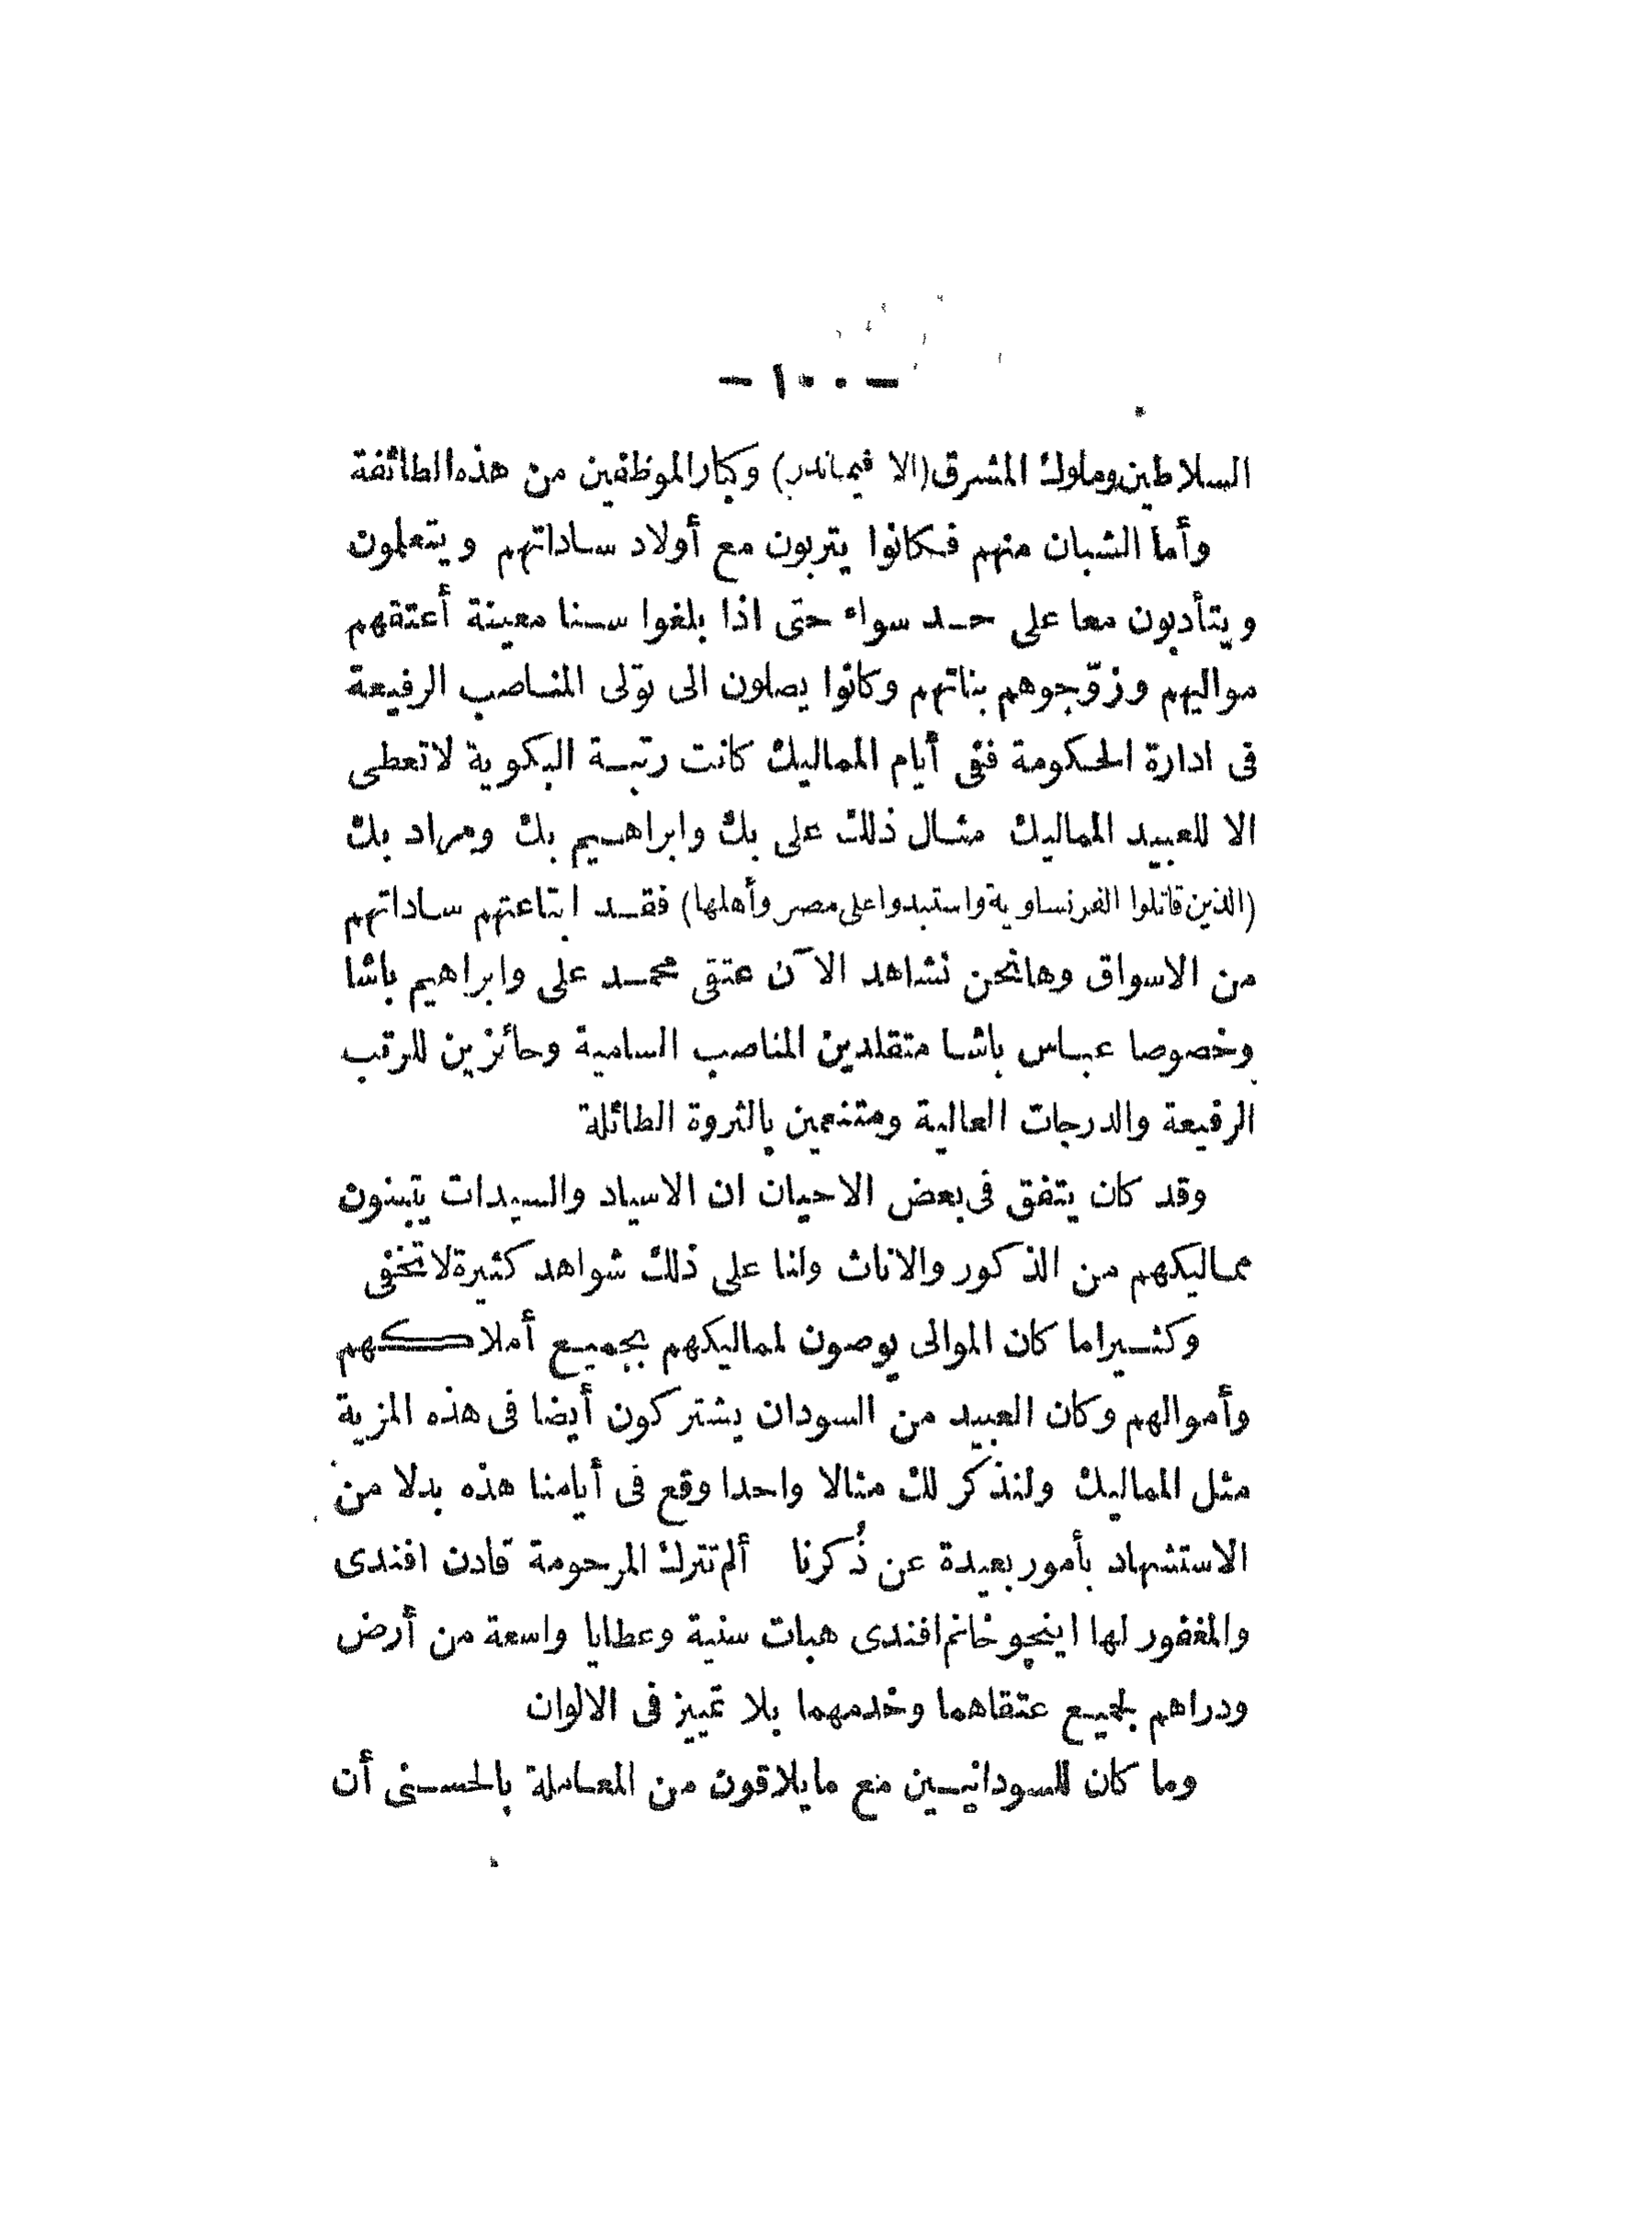 — ١٠٠ —
السلاطين وملوك المشرق (الا فيما ندر) وكبار الموظفين من هذه الطائفة
وأما الشبان منهم فكانوا يتربون مع أولاد ساداتهم ويتعلمون
ويتأدبون معا على حد سواء حتى اذا بلغوا سنا معينة أعتقهم
مواليهم وزوّجوهم بناتهم وكانوا يصلون الى توّلى المناصب الرفيعة
فى ادارة الحكومة ففى أيام المماليك كانت رتبة البكوية لا تعطى
الا للعبيد المماليك مثال ذلك على بك وابراهيم بك ومراد بك
(الذين قاتلوا الفرنساوية واستبدوا على مصر وأهلها) فقد ابتاعتهم ساداتهم
من الاسواق وها نحن نشاهد الآن عتقى محمد على وابراهيم باشا
وخصوصا عباس باشا متقلدين المناصب السامية وحائزين للرتب
الرفيعة والدرجات العالية ومتنعمين بالثروة الطائلة
وقد كان يتفق فى بعض الاحيان ان الاسياد والسيدات يتبنون
مماليكهم من الذكور والاناث ولنا على ذلك شواهد كثيرة لا تخفى
وكثيرا ما كان الموالى يوصون لمماليكهم بجميع أملاكهم
وأموالهم وكان العبيد من السودان يشتركون أيضا فى هذه المزية
مثل المماليك ولنذكر لك مثالا واحدا وقع فى أيامنا هذه بدلا من
الاستشهاد بأمور بعيدة عن ذُكرنا ألم تترك المرحومة قادن افندى
والمغفور لها اينجو خانم افندى هبات سنية وعطايا واسعة من أرض
ودراهم لجميع عتقاهما وخدمهما بلا تمييز فى الالوان
وما كان للسودانيين مع ما يلاقون من المعاملة بالحسنى أن